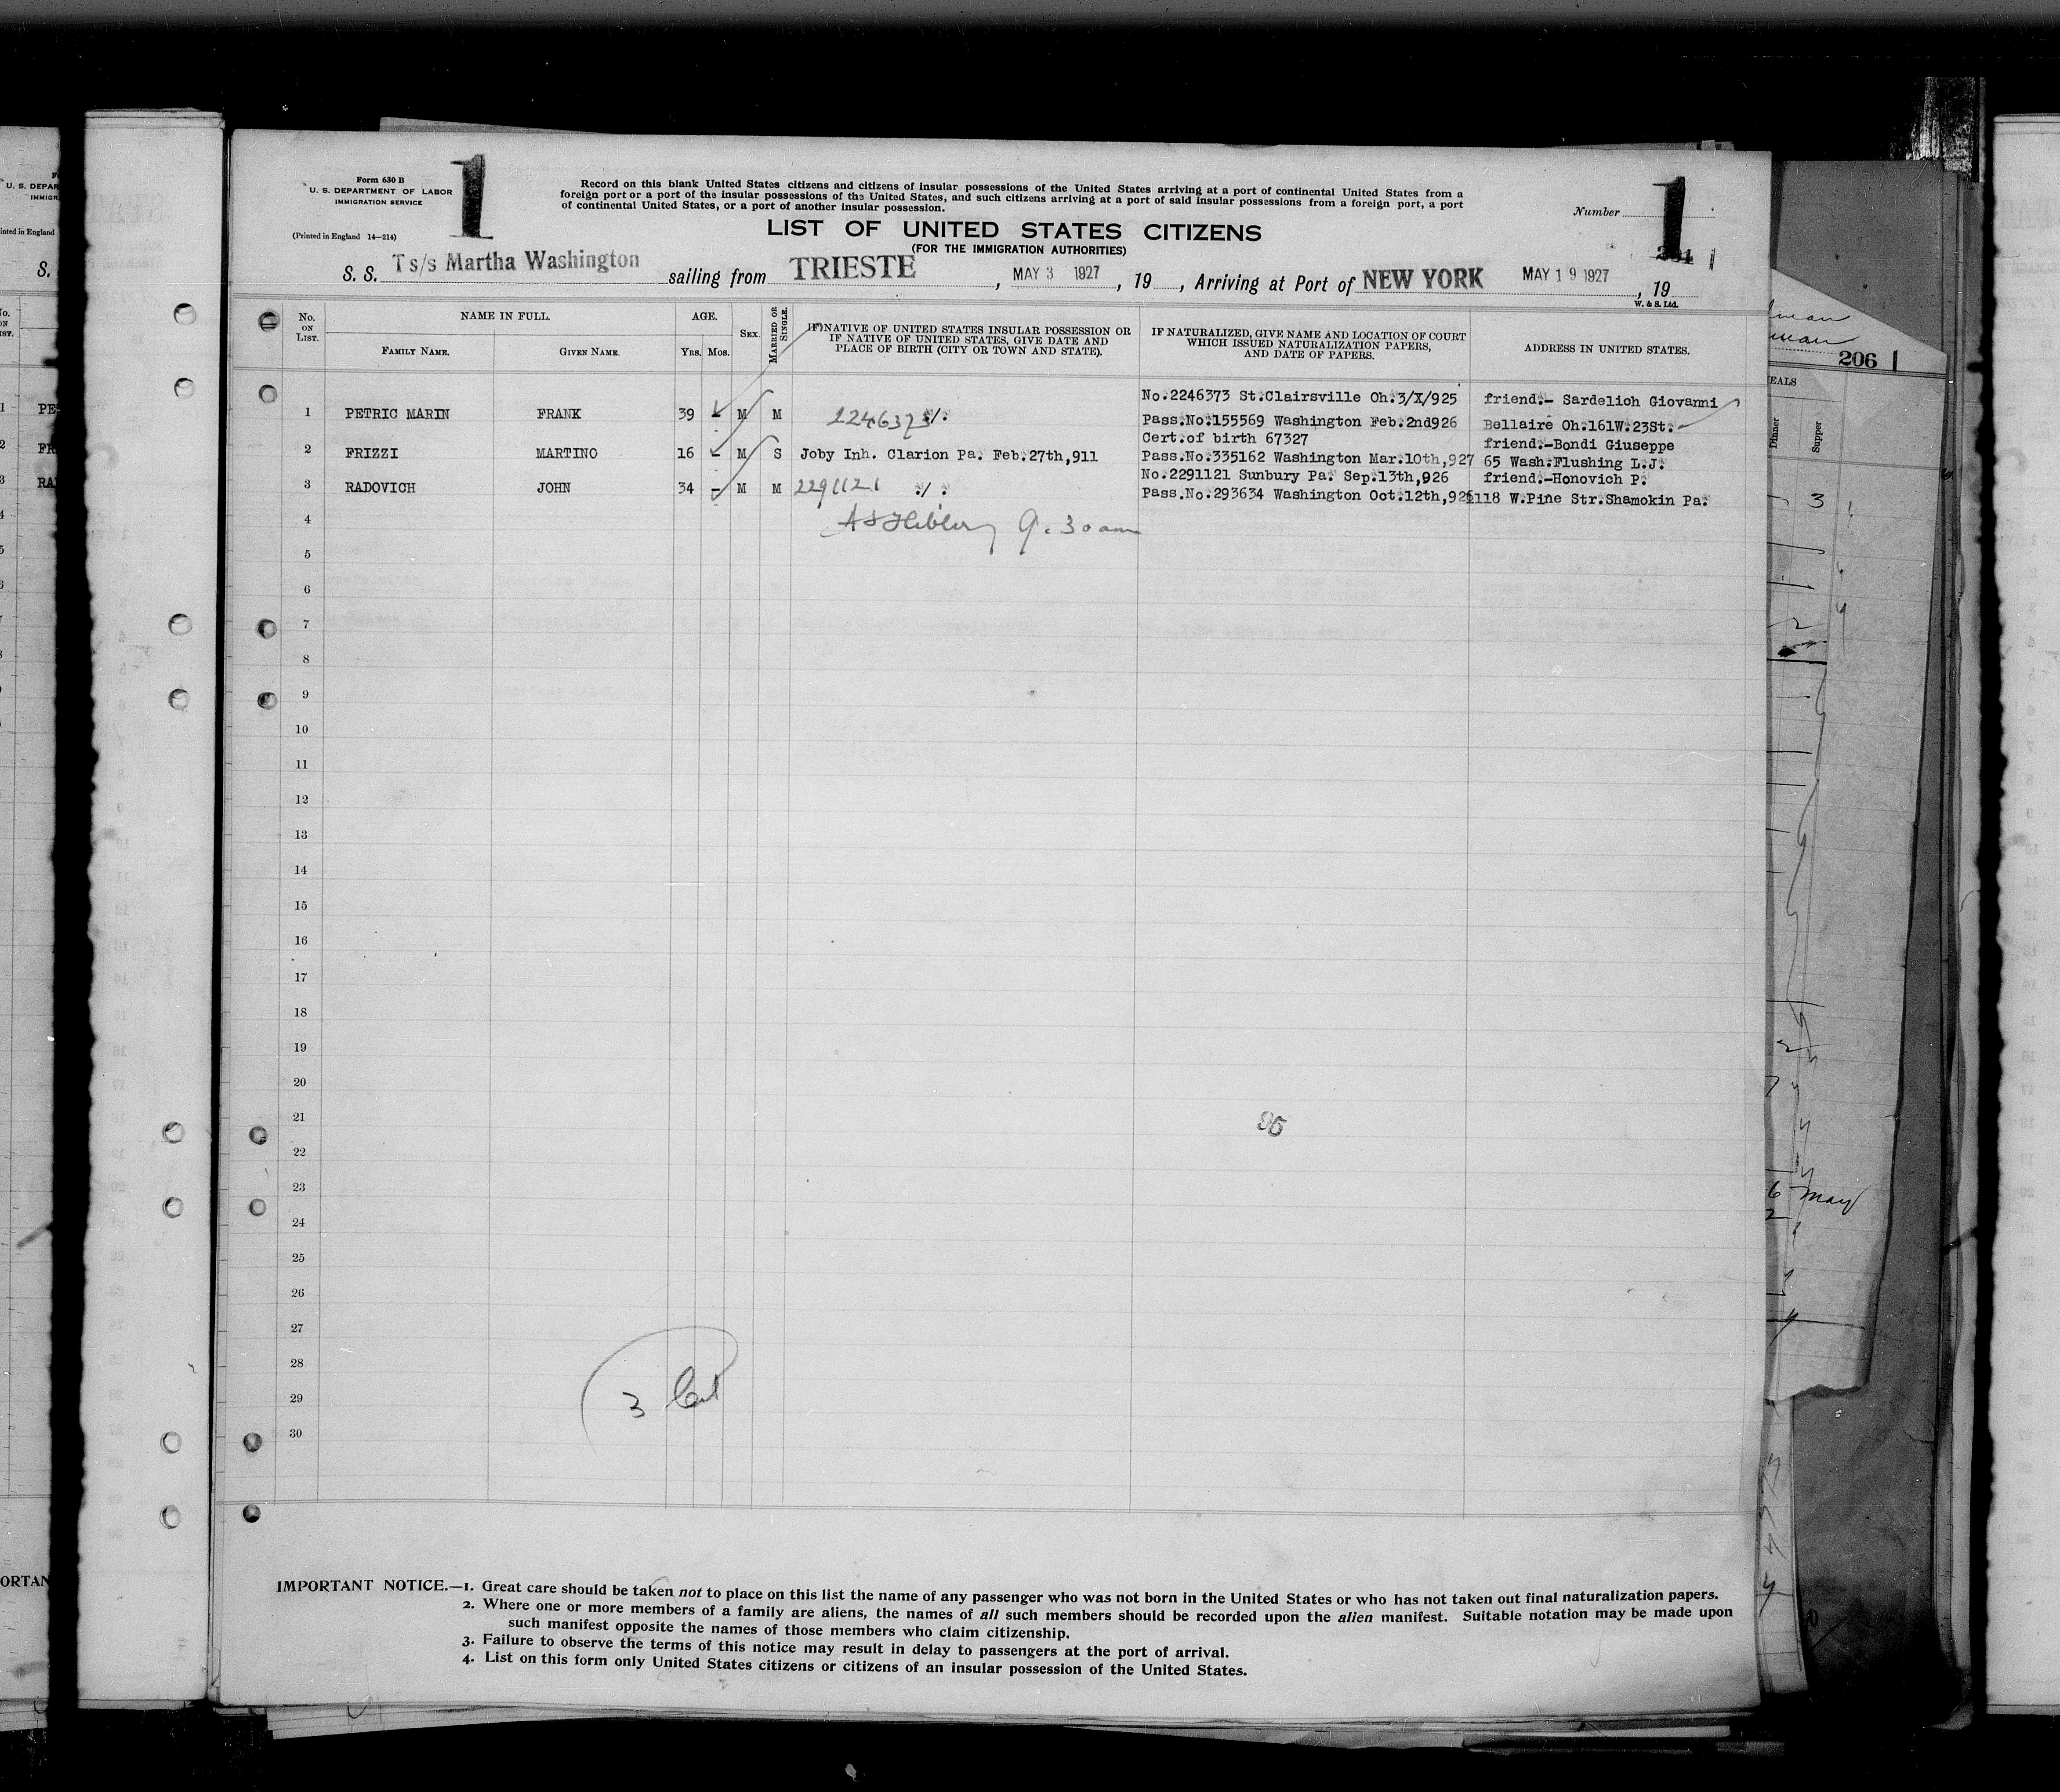 Form 630 B
U. S. DEPARTMENT OF LABOR
IMMIGRATION SERVICE
(Printed in England 14—214)
1
Record on this blank United States citizens and citizens of insular possessions of the United States arriving at a port of continental United States from a
foreign port or a port of the insular possessions of the United States, and such citizens arriving at a port of said insular possessions from a foreign port, a port
of continental United States, or a port of another insular possession.
Number 1
LIST OF UNITED STATES CITIZENS
(FOR THE IMMIGRATION AUTHORITIES)
S. S. Ts/s Martha Washington sailing from TRIESTE, MAY 3 1927, 19, Arriving at Port of NEW YORK MAY 19 1927, 19
W. & S. Ltd.
No. ON LIST.
NAME IN FULL.
FAMILY NAME.
GIVEN NAME.
AGE.
YRS. MOS.
SEX.
MARRIED OR SINGLE.
IF NATIVE OF UNITED STATES INSULAR POSSESSION OR
IF NATIVE OF UNITED STATES, GIVE DATE AND
PLACE OF BIRTH (CITY OR TOWN AND STATE).
IF NATURALIZED, GIVE NAME AND LOCATION OF COURT
WHICH ISSUED NATURALIZATION PAPERS,
AND DATE OF PAPERS.
ADDRESS IN UNITED STATES.
No.2246373 St.Clairsville Oh.3/X/925 friend.- Sardelich Giovanni
1 PETRIC MARIN FRANK 39 - M M 2246373 ./. Pass.No.155569 Washington Feb.2nd926 Bellaire Oh.161W.23St.
Cert.of birth 67327 friend.-Bondi Giuseppe
2 FRIZZI MARTINO 16 - M S Joby Inh. Clarion Pa. Feb.27th,911 Pass.No.335162 Washington Mar.10th,927 65 Wash.Flushing L.J.
No.2291121 Sunbury Pa. Sep.13th,926 friend.-Honovich P.
3 RADOVICH JOHN 34 - M M 2291121 ./. Pass.No.293634 Washington Oct.12th,926 1118 W.Pine Str.Shamokin Pa.
4 9.30 am
5
6
7
8
9
10
11
12
13
14
15
16
17
18
19
20
21
22
23
24
25
26
27
28
29
30
3
IMPORTANT NOTICE.—1. Great care should be taken not to place on this list the name of any passenger who was not born in the United States or who has not taken out final naturalization papers.
2. Where one or more members of a family are aliens, the names of all such members should be recorded upon the alien manifest. Suitable notation may be made upon
such manifest opposite the names of those members who claim citizenship.
3. Failure to observe the terms of this notice may result in delay to passengers at the port of arrival.
4. List on this form only United States citizens or citizens of an insular possession of the United States.
206
Dinner
Supper
3
6 May